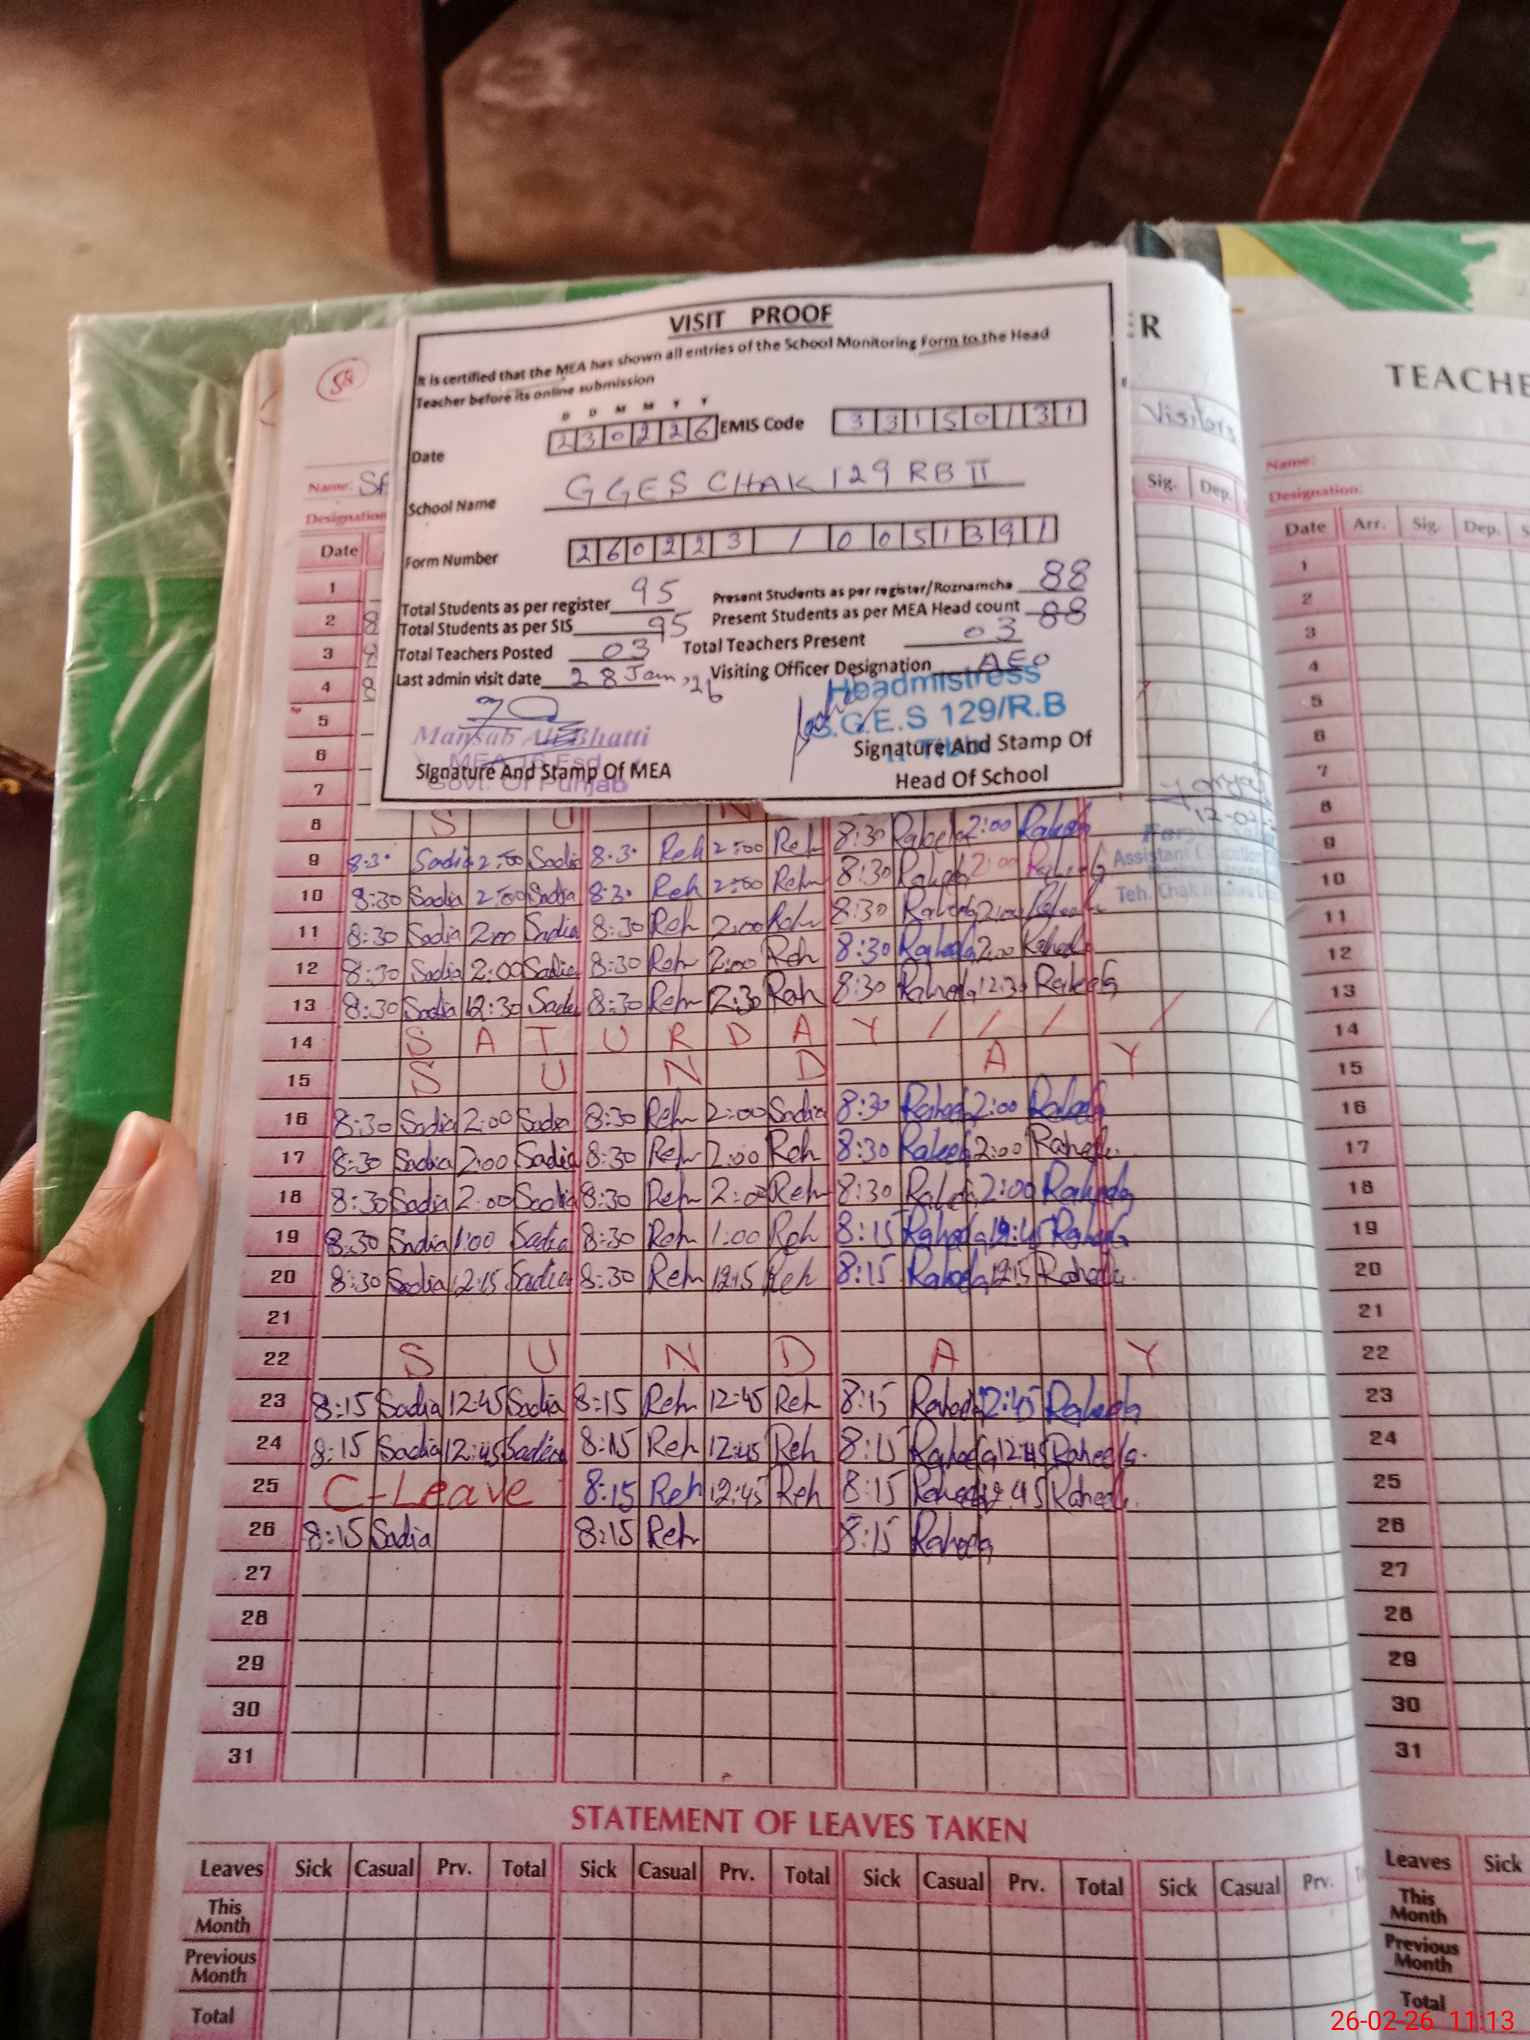 ER
TEACHE
58
VISIT PROOF
It is certified that the MEA has shown all entries of the School Monitoring Form to the Head
Teacher before its online submission
D D M M Y Y
Date 230226 EMIS Code 33150131
School Name GGES CHAK 129 RB II
Form Number 260223 / 0051391
Total Students as per register 95 Present Students as per register/Roznamcha 88
Total Students as per SIS 95 Present Students as per MEA Head count 88
Total Teachers Posted 03 Total Teachers Present 03
Last admin visit date 28 Jan, 26 Visiting Officer Designation AEO
Headmistress
G.G.E.S 129/R.B
Mansab Ali Bhatti
Govt. Of Punjab
Signature And Stamp Of MEA
Signature And Stamp Of
Head Of School
Visitors
Name:
Designation
Date
Sig. Dep.
Name:
Designation:
Date Arr. Sig. Dep.
1
2 8
3
4 8
5
6
7
8 S U N
9 8:30 Sadia 2:00 Sadia 8:30 Reh 2:00 Reh 8:30 Raheela 2:00 Raheela
10 8:30 Sadia 2:00 Sadia 8:30 Reh 2:00 Reh 8:30 Raheela 2:00 Raheela
11 8:30 Sadia 2:00 Sadia 8:30 Reh 2:00 Reh 8:30 Raheela 2:00 Raheela
12 8:30 Sadia 2:00 Sadia 8:30 Reh 2:00 Reh 8:30 Raheela 2:00 Raheela
13 8:30 Sadia 12:30 Sadia 8:30 Reh 12:30 Reh 8:30 Raheela 12:30 Raheela
14 S A T U R D A Y / / / / /
15 S U N D A Y
16 8:30 Sadia 2:00 Sadia 8:30 Reh 2:00 Sadia 8:30 Raheela 2:00 Raheela
17 8:30 Sadia 2:00 Sadia 8:30 Reh 2:00 Reh 8:30 Raheela 2:00 Raheela
18 8:30 Sadia 2:00 Sadia 8:30 Reh 2:00 Reh 8:30 Raheela 2:00 Raheela
19 8:30 Sadia 1:00 Sadia 8:30 Reh 1:00 Reh 8:15 Raheela 12:45 Raheela
20 8:30 Sadia 12:15 Sadia 8:30 Reh 12:15 Reh 8:15 Raheela 12:15 Raheela
21
22 S U N D A Y
23 8:15 Sadia 12:45 Sadia 8:15 Reh 12:45 Reh 8:15 Raheela 12:45 Raheela
24 8:15 Sadia 12:45 Sadia 8:15 Reh 12:45 Reh 8:15 Raheela 12:45 Raheela
25 C-Leave 8:15 Reh 12:45 Reh 8:15 Raheela 12:45 Raheela
26 8:15 Sadia 8:15 Reh 8:15 Raheela
27
28
29
30
31
Assistant Education
1
2
3
4
5
6
7
8
9
10
11
12
13
14
15
16
17
18
19
20
21
22
23
24
25
26
27
28
29
30
31
STATEMENT OF LEAVES TAKEN
Leaves Sick Casual Prv. Total Sick Casual Prv. Total Sick Casual Prv. Total Sick Casual Prv.
This Month
Previous Month
Total
Leaves Sick
This Month
Previous Month
Total
26-02-26 11:13